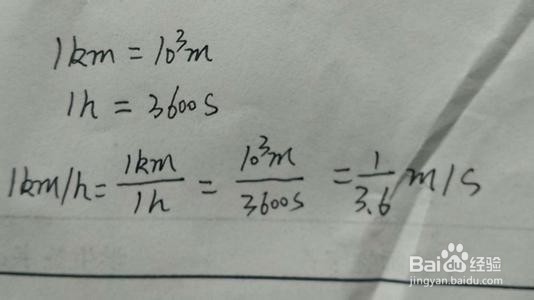 1km = 10³m
1h = 3600s
1km/h = 1km/1h = 10³m/3600s = 1/3.6 m/s
Baidu 经验
jingyan.baidu.com